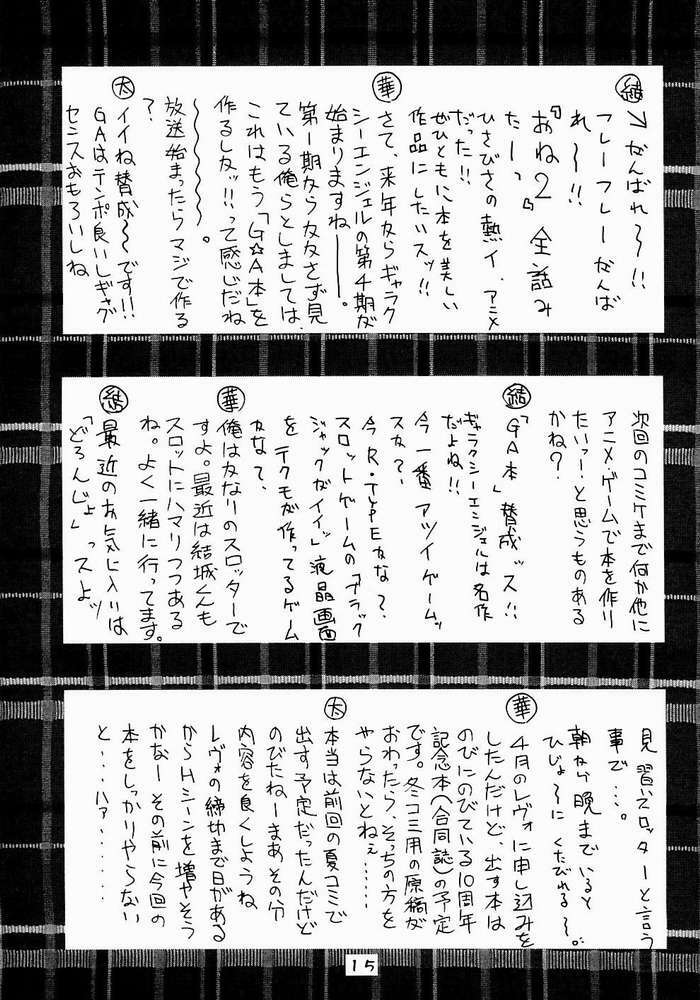 結→がんばれ〜!!
フレーフレーがんば
れ〜!!
『おね2』全話み
たーっ
ひさびさの熱イ、アニメ
だった!!
ぜひともに本を美しい
作品にしたいスッ!!
華
さて、来年からギャラク
シーエンジェルの第4期が
始まりますねー。
第1期からかかさず見
ている俺らとしましては、
これはもう「G☆A本」を
作るしかッ!!って感じだね
〜〜〜〜。
放送始まったらマジで作る
?
太
イイね賛成〜です!!
GAはテンポ良いしギャグ
センスおもろいしね
次回のコミケまで何か他に
アニメ・ゲームで本を作り
たいっー!と思うものある
かね?
結
「GA本」賛成ッス!!
ギャラクシーエンジェルは名作
だよね!!
今一番アツイゲームッ
スか?、
今R・TYPEかな?、
スロットゲームの「ブラック
ジャックがイイッ」液晶画面
をテクモが作ってるゲーム
かな?、
華
俺はかなりのスロッターで
すよ。最近は結城くんも
スロットにハマりつつある
ね。よく一緒に行ってます。
結
最近のお気に入りは
「どろんじょ」っスよッ
見習いスロッターと言う
事で…。
朝から晩までいると
ひじょ〜にくたびれる〜。
華
4月のレヴォに申し込みを
したんだけど、出す本は
のびにのびている10周年
記念本(合同誌)の予定
です。冬コミ用の原稿が
おわったら、そっちの方を
やらないとねぇ……
太
本当は前回の夏コミで
出す予定だったんだけど
のびたねーまあその分
内容を良くしようね
レヴォの締切まで日がある
からHシーンを増やそう
かなーその前に今回の
本をしっかりやらない
と…ハァ………
15